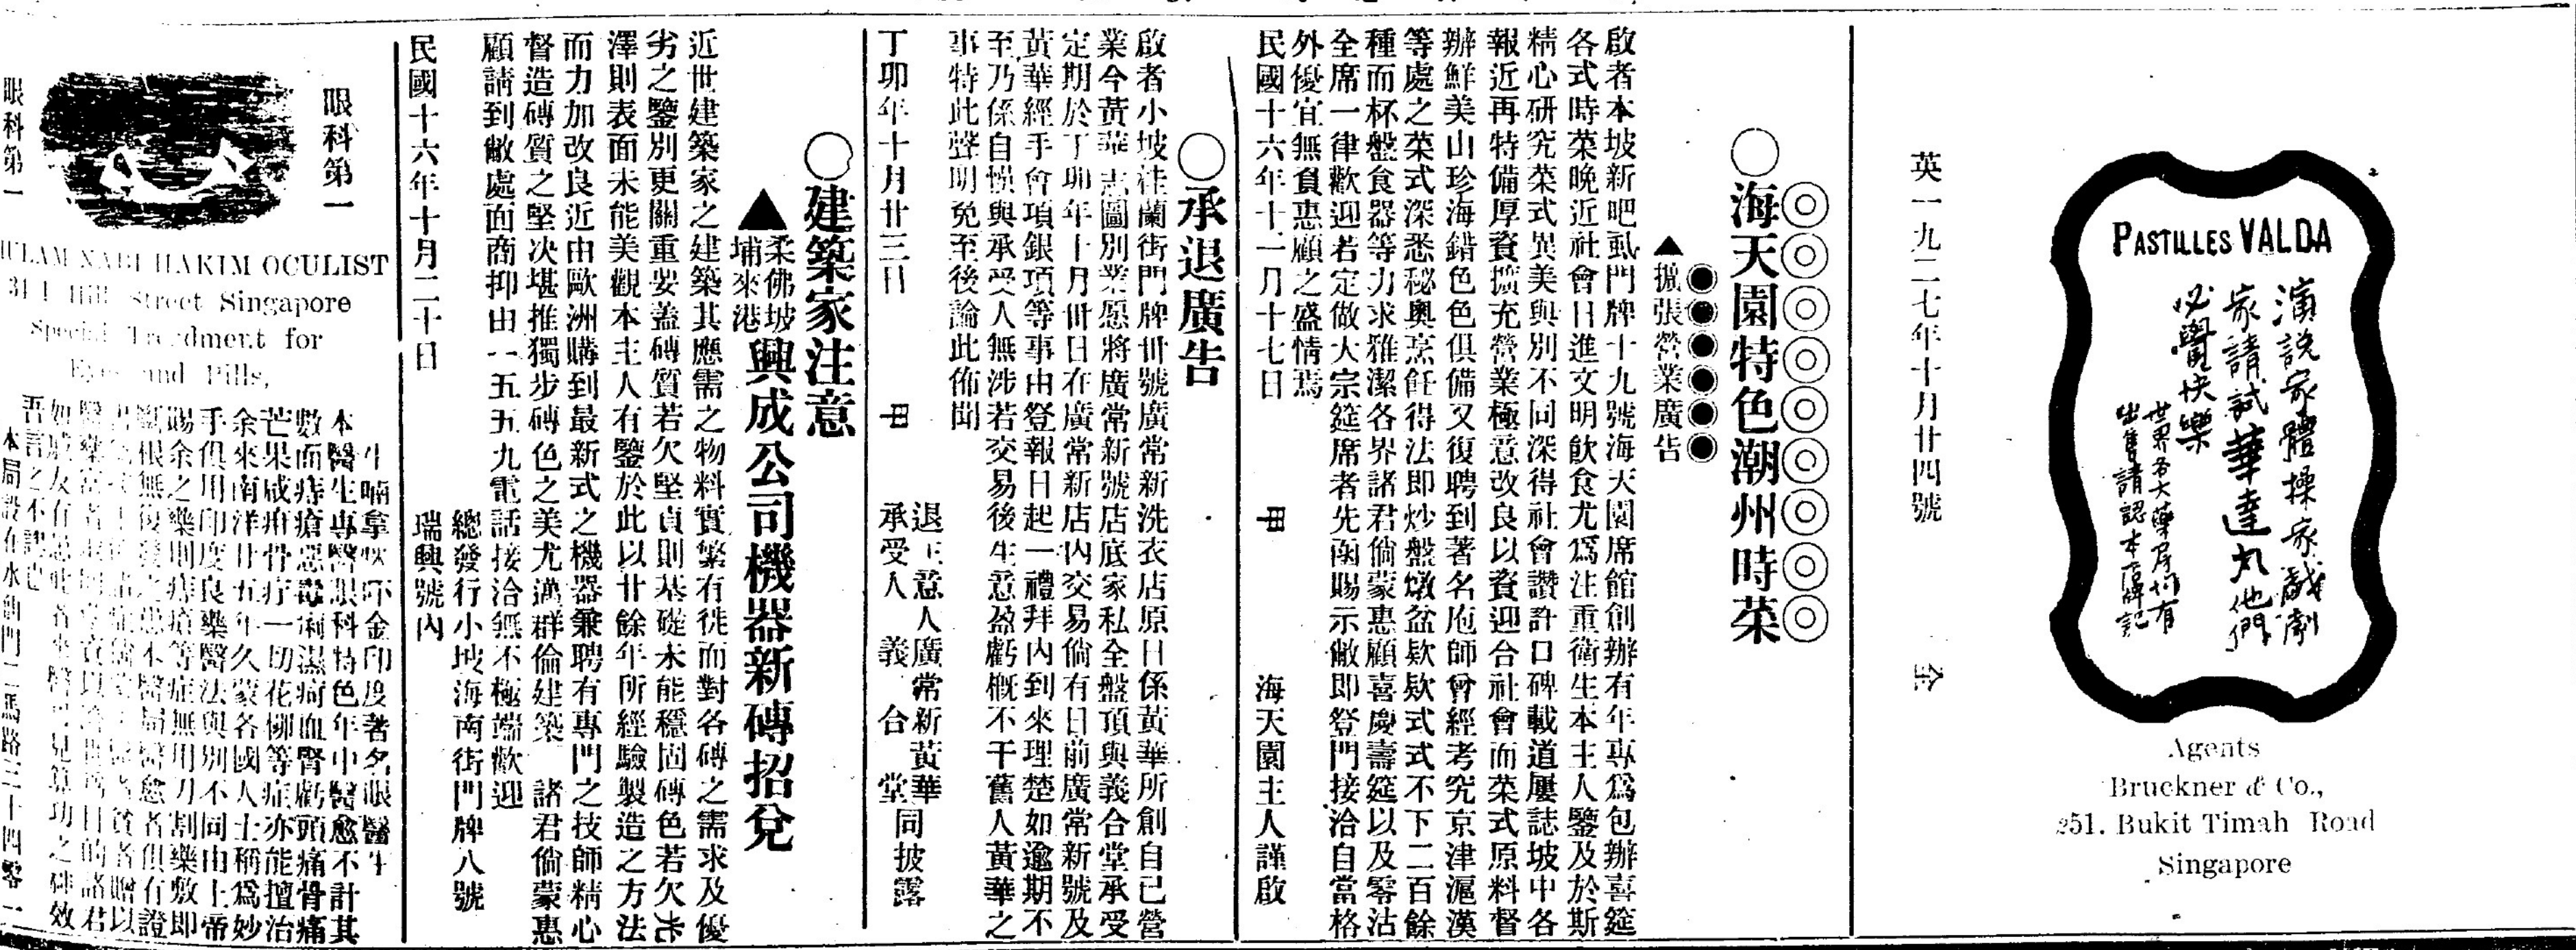 PASTILLES VALDA
演說家體操家戲劇
家請試華達丸他們
必覺快樂
世界各大藥房均有
出售請認本店牌記
Agents
Bruckner & Co.,
251. Bukit Timah Road
Singapore
英一九二七年十月廿四號 仝
◎◎◎◎◎◎◎◎◎
○海天園特色潮州時菜
●●●●●●
▲擴張營業廣告
啟者本坡新吧虱門牌十九號海天園席館創辦有年專爲包辦喜筵
各式時菜晚近社會日進文明飲食尤爲注重衛生本主人鑒及於斯
精心研究菜式異美與別不同深得社會讚許口碑載道屢誌坡中各
報近再特備厚資擴充營業極意改良以資迎合社會而菜式原料督
辦鮮美山珍海錯色色俱備又復聘到著名庖師曾經考究京津滬漢
等處之菜式深悉秘奧烹飪得法即炒盤燉盆欵欵式式不下二百餘
種而杯盤食器等力求雅潔各界諸君倘蒙惠顧喜慶壽筵以及零沽
全席一律歡迎若定做大宗筵席者先函賜示敝即登門接洽自當格
外優宜無負惠顧之盛情焉
民國十六年十一月十七日 海天園主人謹啟
○承退廣告
啟者小坡佳蘭街門牌卅號廣常新洗衣店原日係黃華所創自已營
業今黃華志圖別業愿將廣常新號店底家私全盤頂與義合堂承受
定期於丁卯年十月卅日在廣常新店內交易倘有日前廣常新號及
黃華經手會項銀項等事由登報日起一禮拜內到來理楚如逾期不
至乃係自悞與承受人無涉若交易後生意盈虧概不干舊人黃華之
事特此聲明免至後論此佈聞
丁卯年十月廿三日
退生意人廣常新黃華
承受人 義 合 堂
同披露
○建築家注意
▲柔佛坡
埔來港
興成公司機器新磚招兌
近世建築家之建築其應需之物料實繁有徙而對各磚之需求及優
劣之鑒別更關重要蓋磚質若欠堅貞則基礎未能穩固磚色若欠光
澤則表面未能美觀本主人有鑒於此以廿餘年所經驗製造之方法
而力加改良近由歐洲購到最新式之機器兼聘有專門之技師精心
督造磚質之堅决堪推獨步磚色之美尤邁群倫建築 諸君倘蒙惠
顧請到敝處面商抑由一五五九電話接洽無不極端歡迎
總發行小坡海南街門牌八號
瑞興號內
民國十六年十月二十日
眼科第一
眼科第一
NABI HAKIM OCULIST
Hill Street Singapore
Special Treatment for
Eyes and Pills,
金印度著名眼醫生
本醫生專醫眼科特色年中醫愈不計其
數面痔瘡惡毒痢濕疴血腎虧頭痛骨痛
芒果咸疳骨疔一切花柳等症亦能擅治
余來南洋廿五年久蒙各國人士稱爲妙
手俱用印度良藥醫法與別不同由上帝
賜余之藥則痔瘡等症無用刀割藥敷即
本局設在水仙門二馬路三十四零一